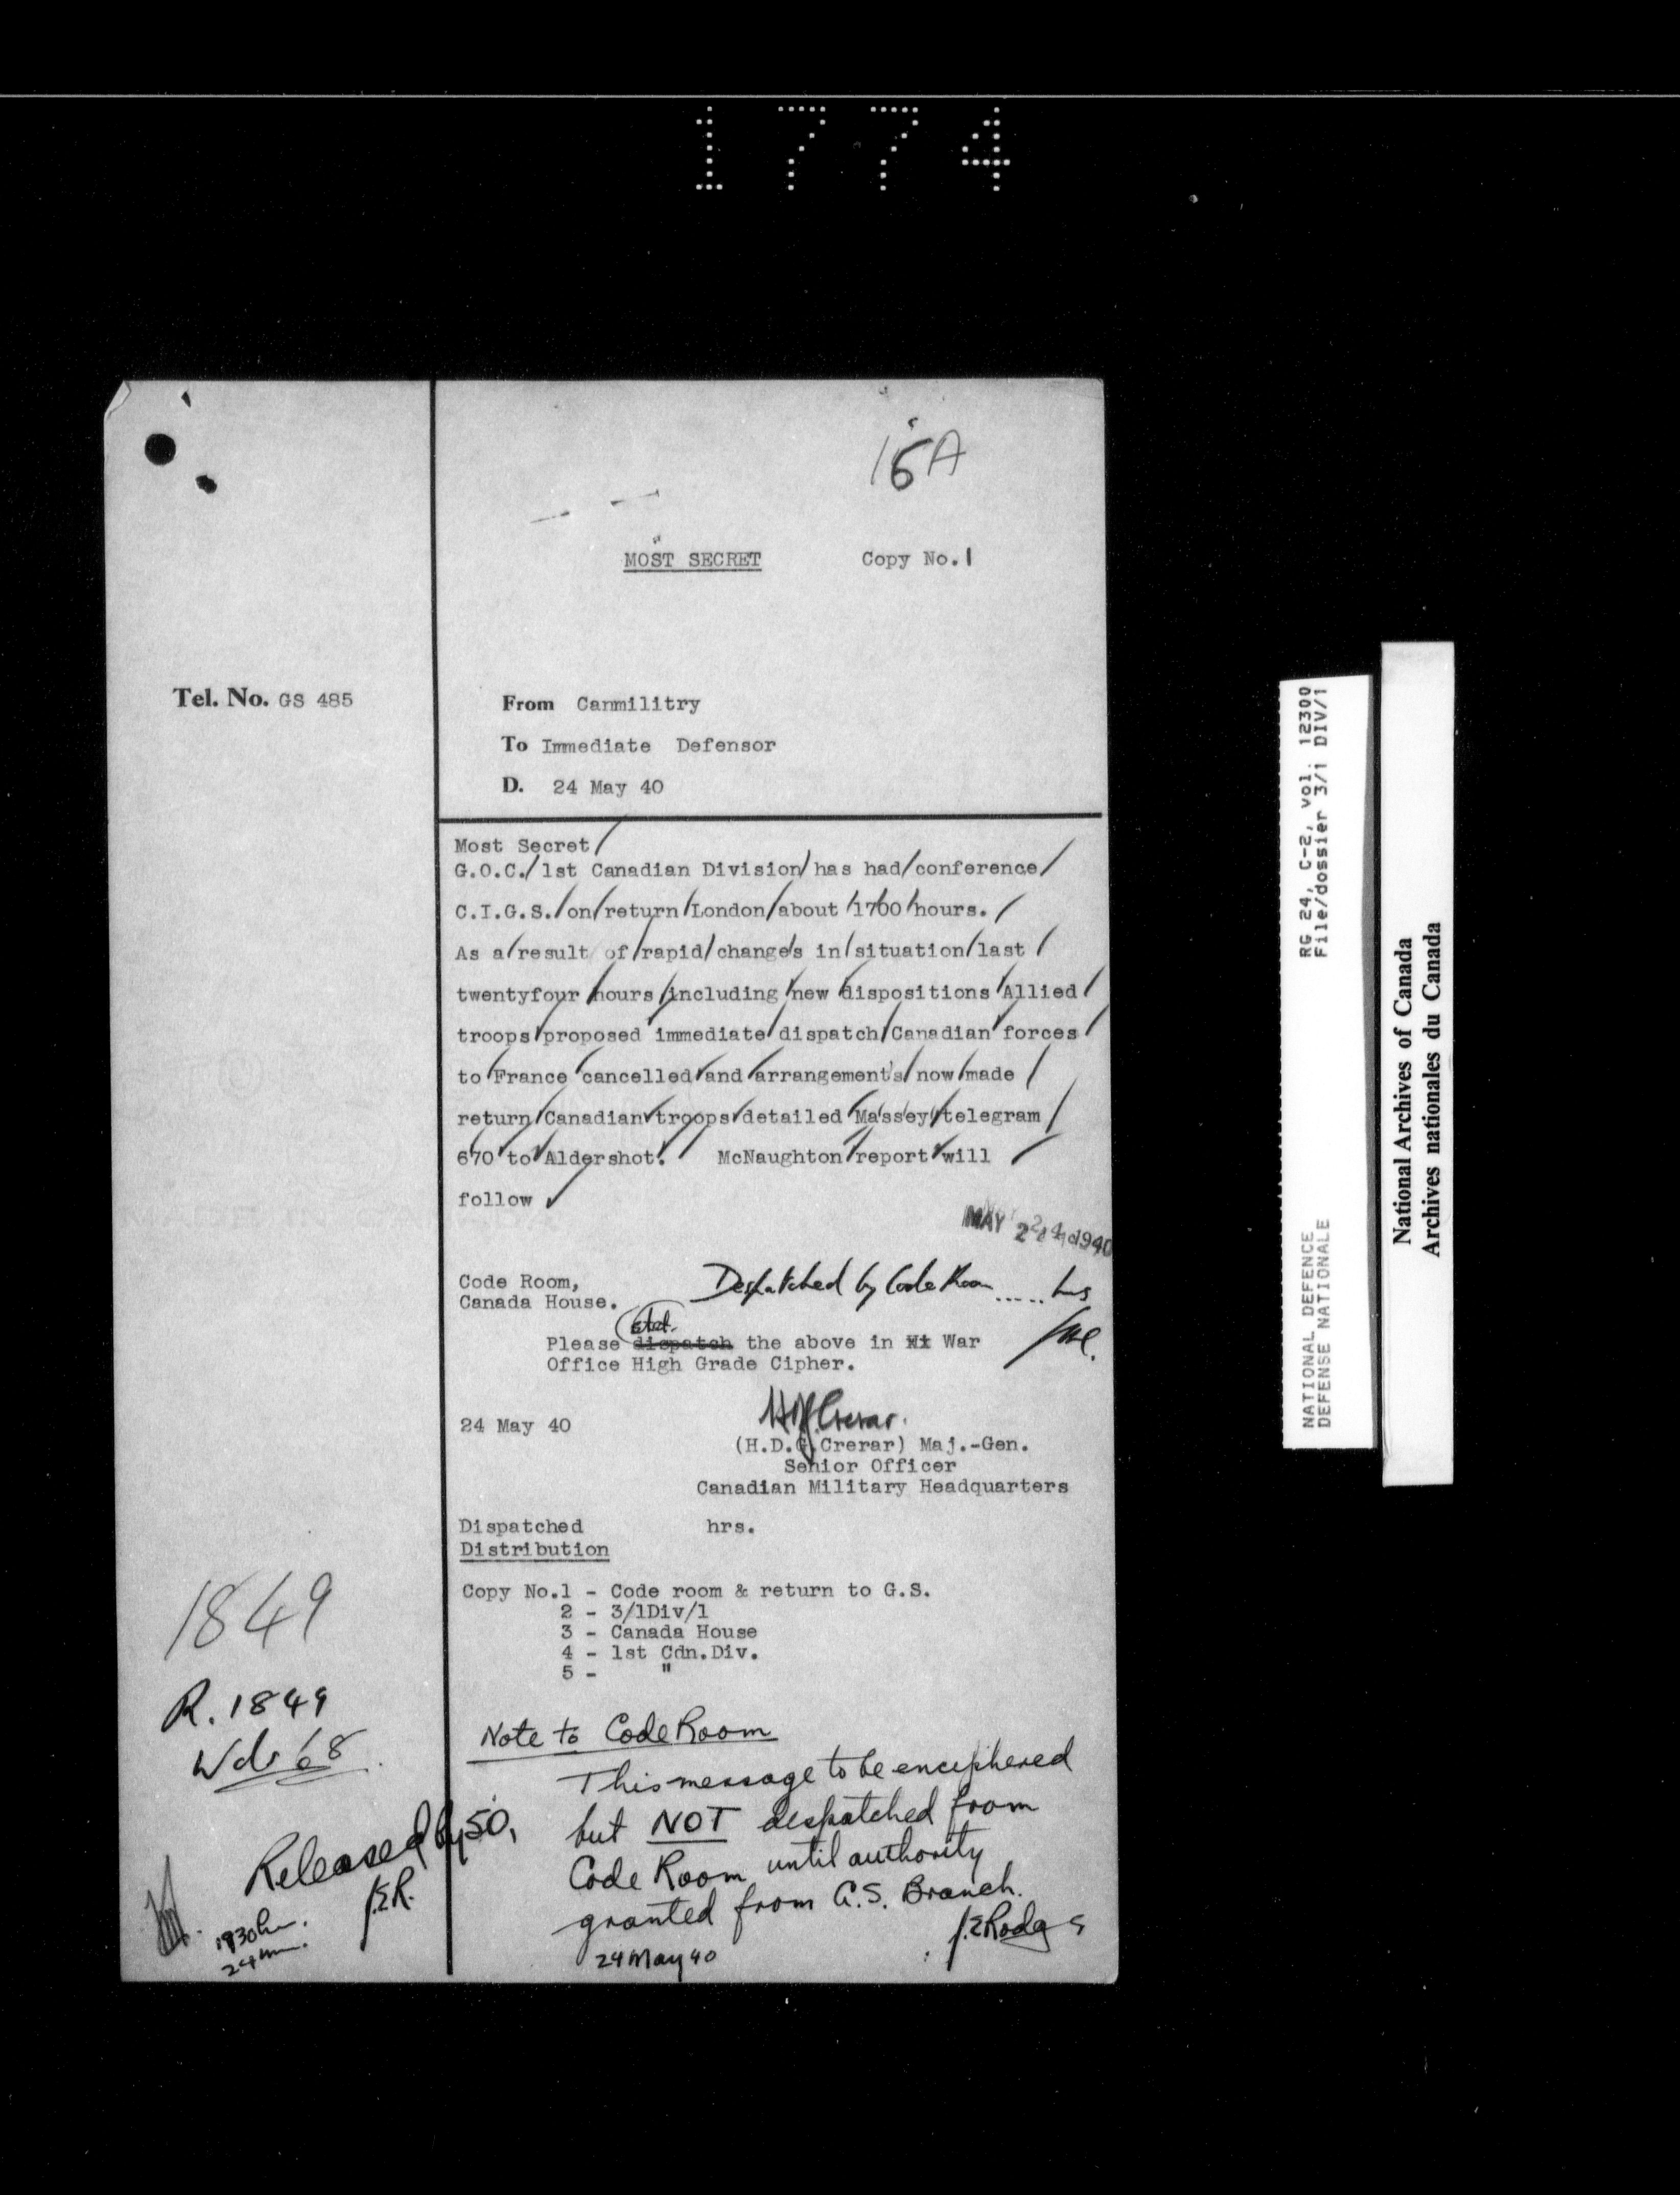 1774
16A
MOST SECRET Copy No. 1
Tel. No. GS 485
From Canmilitry
To Immediate Defensor
D. 24 May 40
Most Secret/
G.O.C./1st Canadian Division/has had/conference/
C.I.G.S./on/return/London/about/1700/hours./
As a/result/of/rapid/changes in/situation/last/
twentyfour/hours/including/new/dispositions/Allied/
troops/proposed/immediate/dispatch/Canadian/forces/
to/France/cancelled/and/arrangements/now/made/
return/Canadian/troops/detailed/Massey/telegram/
670/to/Aldershot./ McNaughton/report/will/
follow/
MAY 24 1940
Code Room,
Canada House.
Despatched by Code Room ..... hrs
stet.
Please dispatch the above in Hi War
Office High Grade Cipher.
24 May 40
HDG Crerar.
(H.D.G.Crerar) Maj.-Gen.
Senior Officer
Canadian Military Headquarters
Dispatched hrs.
Distribution
Copy No.1 - Code room & return to G.S.
2 - 3/1Div/1
3 - Canada House
4 - 1st Cdn.Div.
5 - "
1849
R. 1849
Wds 68
Note to Code Room
This message to be enciphered
but NOT despatched from
Code Room until authority
granted from G.S. Branch.
J.E Rodgs
24 May 40
Released by 50,
J.E.R.
1930 hr.
24
RG 24, C-2, vol. 12300
File/dossier 3/1 DIV/1
NATIONAL DEFENCE
DEFENSE NATIONALE
National Archives of Canada
Archives nationales du Canada